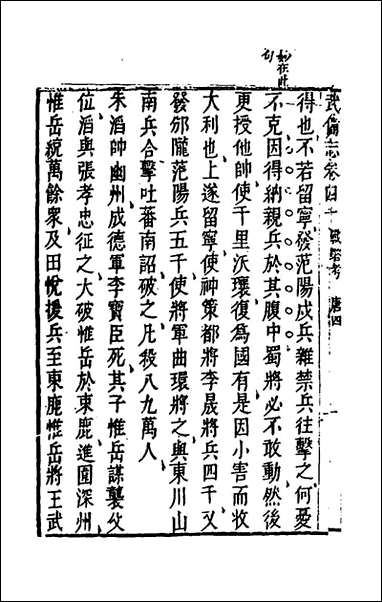 妙在此
句
武備志卷四十 戰略考 唐四
得也不若留寧發范陽戍兵雜禁兵往擊之何憂
不克因得納親兵於其腹中蜀將必不敢動然後
更授他帥使千里沃壤復為國有是因小害而收
大利也上遂留寧使神策都將李晟將兵四千又
發邠隴范陽兵五千使將軍曲環將之與東川山
南兵合擊吐蕃南詔破之凡殺八九萬人
朱滔帥幽州成德軍李寶臣死其子惟岳謀襲父
位滔與張孝忠征之大破惟岳於束鹿進圍深州
惟岳統萬餘衆及田悅援兵至東鹿惟岳將王武